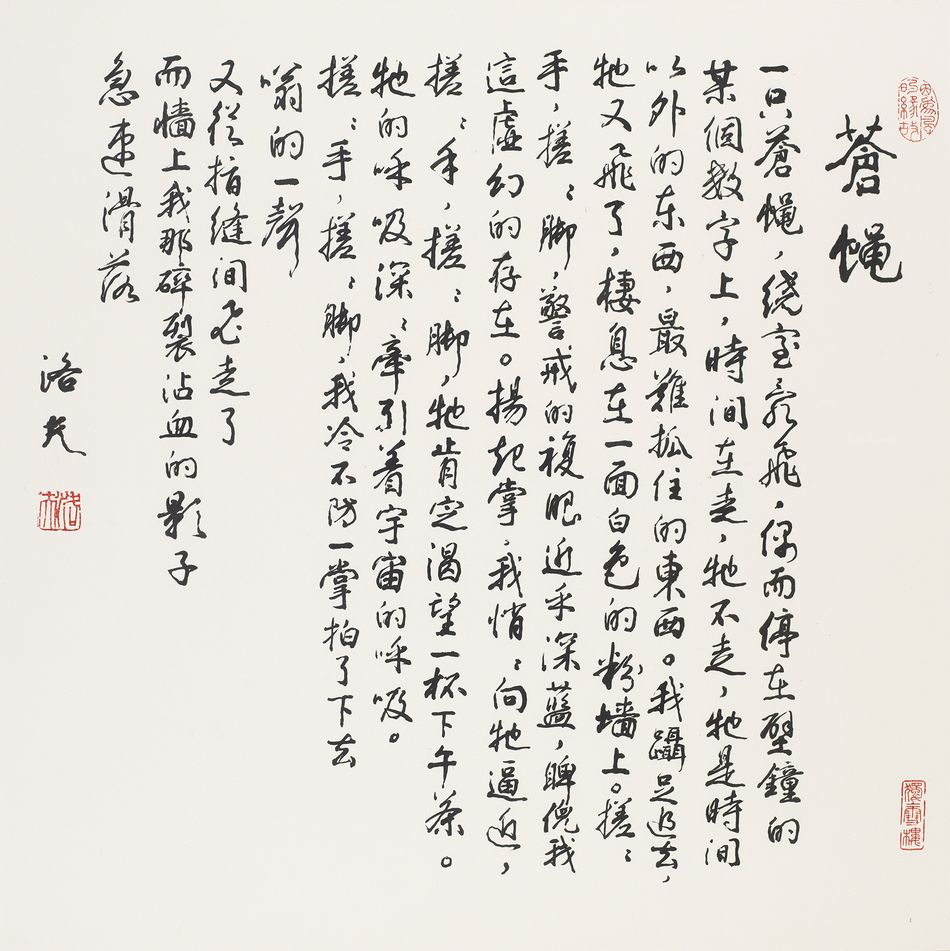 蒼蝇
一只蒼蝇,繞室亂飛,偶而停在壁鐘的
某個数字上,時间在走,牠不走,牠是時间
以外的东西,最難抓住的東西。我躡足追去,
牠又飛了,棲息在一面白色的粉墙上。搓々
手,搓々脚,警戒的複眼近乎深藍,睥倪我
這虛幻的存在。揚起掌,我悄々向牠逼近,
搓々手,搓々脚,牠肯定渴望一杯下午茶。
牠的呼吸深々牽引着宇宙的呼吸。
搓々手,搓々脚,我冷不防一掌拍了下去
嗡的一聲,
又從指縫间飞走了
而墙上我那碎裂沾血的影子
急速滑落
洛夫
因為風的緣故
洛夫